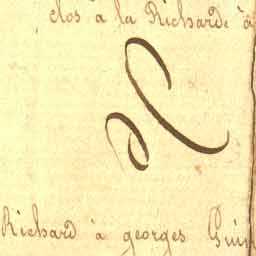 clos à la Richard à
Richard à georges